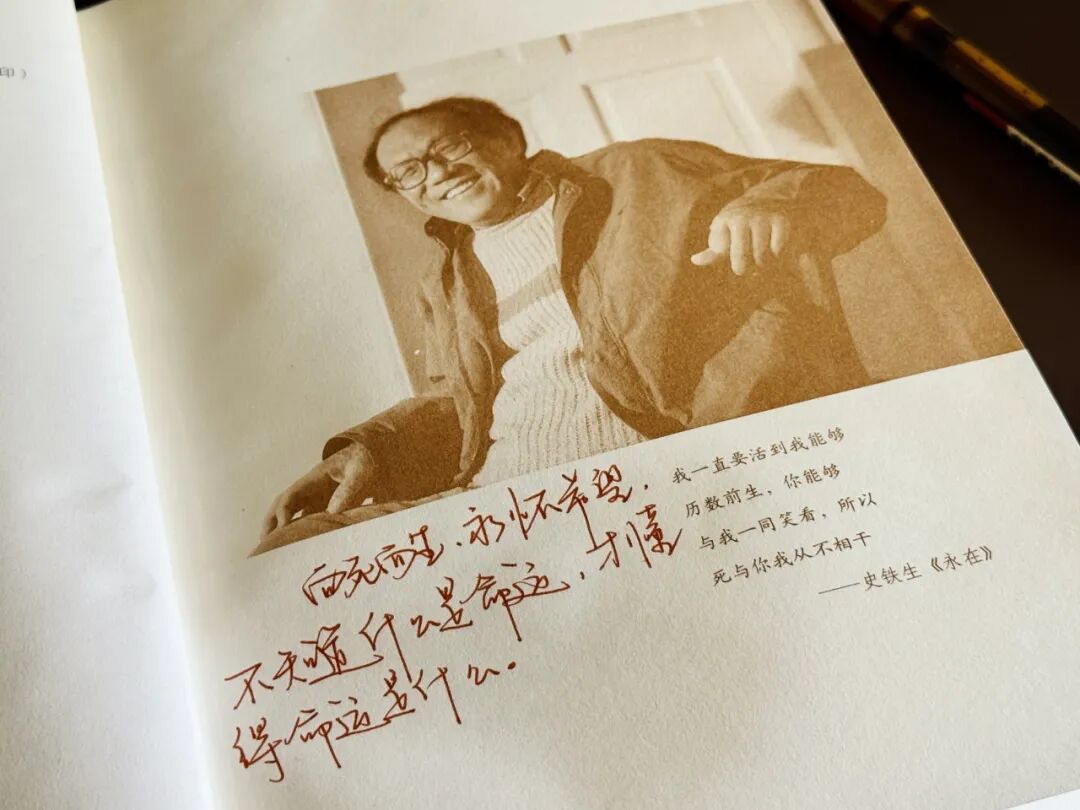 印）
我一直要活到我能够
历数前生，你能够
与我一同笑看，所以
死与你我从不相干
——史铁生《永在》
向死而生，永怀希望，
不知道什么是命运，才懂
得命运是什么.